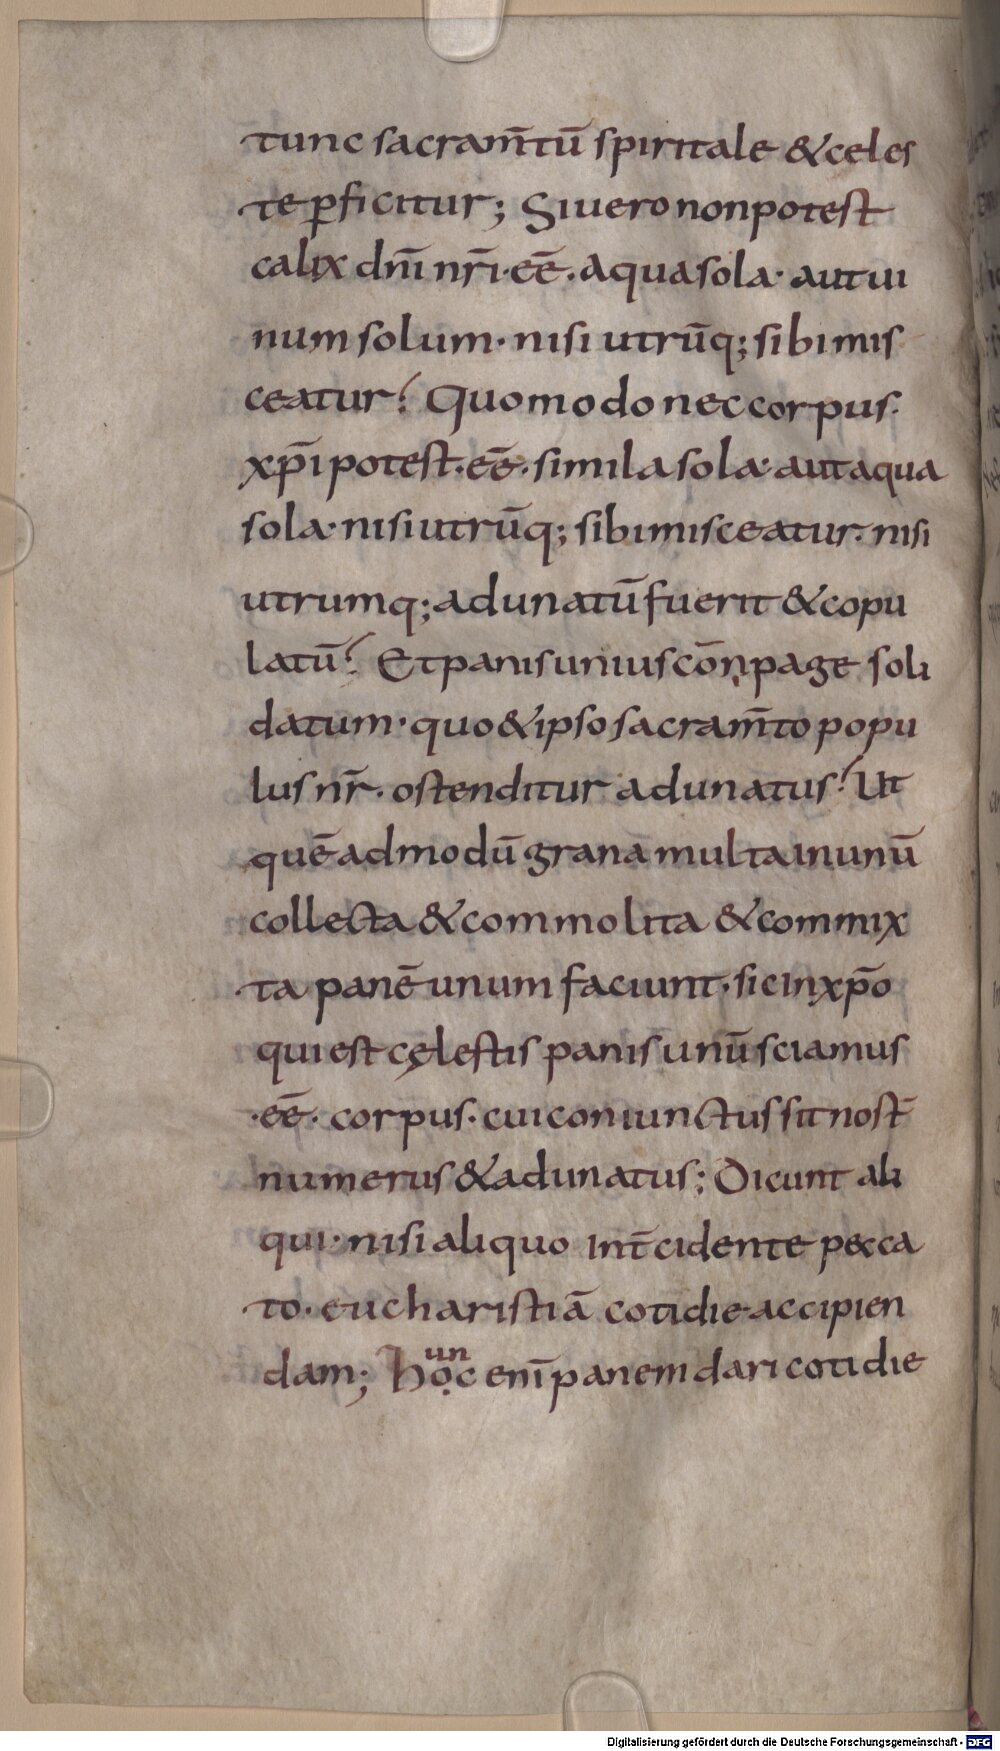 tunc sacram̄tū spiritale & celes
te ꝑficitur; Si uero non potest
calix dn̄i nr̄i· eē· aqua sola· aut ui
num solum· nisi utrūq; sibi mis
ceatur? Quomodo nec corpus·
xp̄i potest· eē· simila sola· aut aqua
sola· nisi utrūq; sibi misceatur· nisi
utrumq; adunatū fuerit & copu
latū? Et panis unius cōnpage soli
datum· quo & ipso sacram̄to popu
lus nr̄· ostenditur adunatus? Ut
quēadmodū grana multa in unū
collecta & commolita & commix
ta panē unum faciunt· sic in xp̄o
qui est cęlestis panis unū sciamus
·eē· corpus· cui coniunctus sit nost̄
numerus & adunatus; Dicunt ali
qui· nisi aliquo int̄cidente pecca
to· eucharistiā cotidie accipien
dam; Học un enī panem dari cotidie
Digitalisierung gefördert durch die Deutsche Forschungsgemeinschaft - DFG